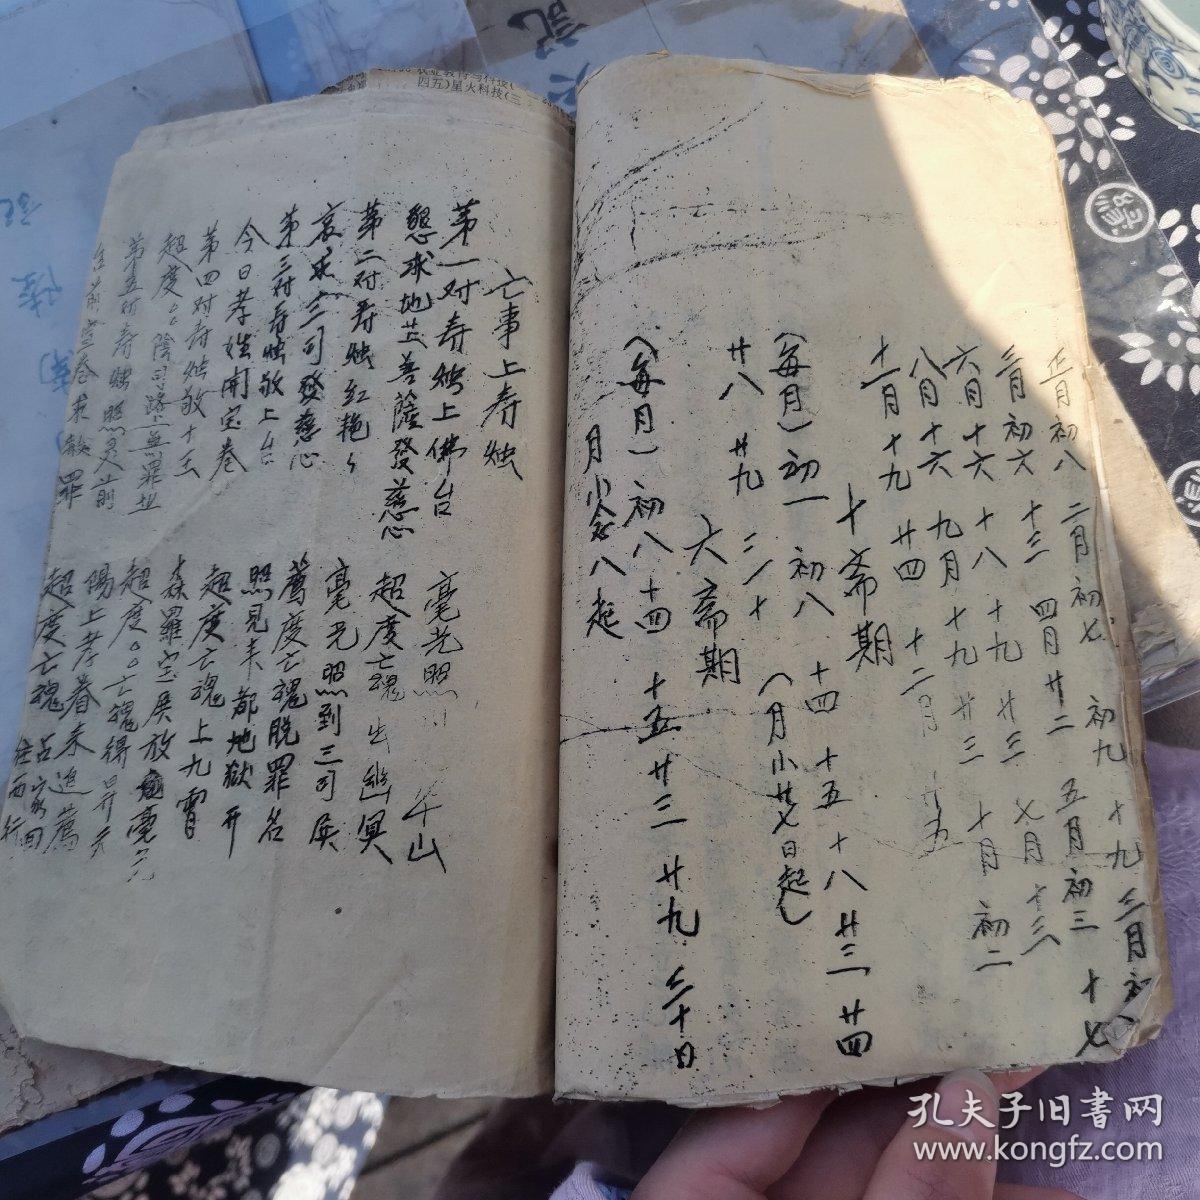 正月初八 二月初七 初九 十九 三月初八
三月初六 十三 四月廿二 五月初三 十七
六月十六 十八 十九 廿三 七月十三
八月十六 九月十九 廿三 十月初二
十一月十九 廿四 十二月廿五
十斋期
(每月)初一 初八 十四 十五 十八 廿三 廿四
廿八 廿九 三十 (月小廿七日起)
六斋期
(每月)初八 十四 十五 廿三 廿九 三十日
月小 八起
亡事上寿烛
第一对寿烛上佛台 毫光照 山
懇求地藏菩薩發慈心 超度亡魂出幽冥
第二对寿烛红艳々 毫光照到三司殿
哀求三司發慈心 薦度亡魂脱罪名
第三对寿烛敬上台 照見丰都地獄开
今日孝姓開宝卷 超度亡魂上九霄
第四对寿烛敬十王 森羅宝殿放毫光
超度○○陰司路上無罪 超度○○亡魂得昇天
第五对寿烛照灵前 陽上孝眷来追薦
灵前宣卷求赦罪 超度亡魂往西行
农业教育与科技(
四五)星火科技(三
孔夫子旧书网
www.kongfz.com